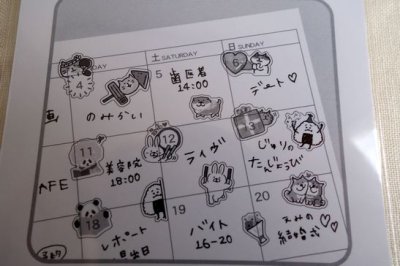 DAY
土 SATURDAY
日 SUNDAY
4
5
歯医者
14:00
6
のみかい
デート♡
11
12
美容院
18:00
ライヴ
じゅりの
たんじょうび
AFE
18
19
20
レポート
提出日
バイト
16-20
えみの
結婚式